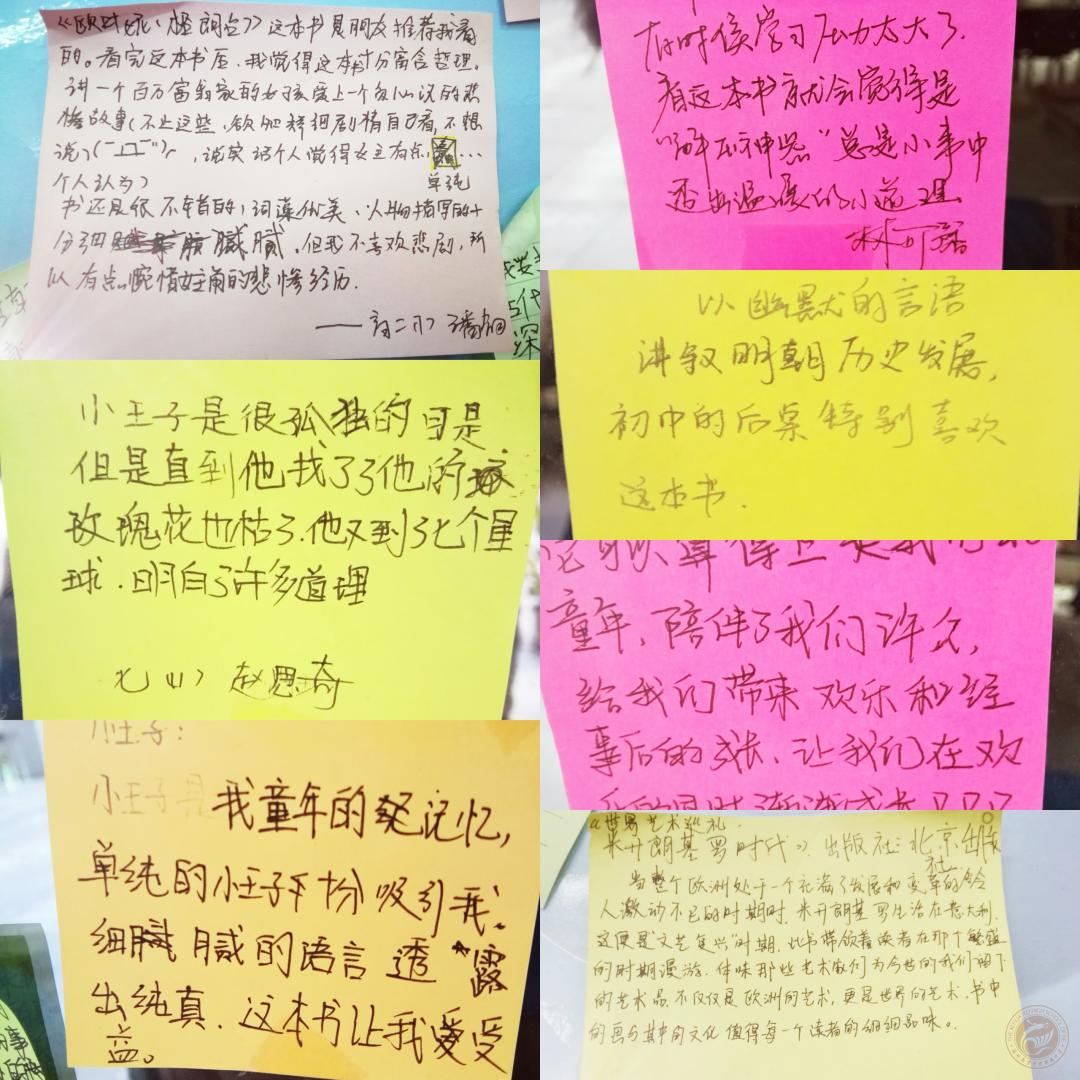 《欧也妮·葛朗台》这本书是朋友推荐我看
的。看完这本书后,我觉得这本书十分富含哲理。
讲一个百万富翁家的女孩爱上一个负心汉的悲
惨故事(不止这些,欲知详细剧情自己看,不想
说)
,说实话个人觉得女主有点
...
单纯
个人认为)
书还是很不错的,词藻优美、人物描写的十
分细腻,但我不喜欢悲剧,所
以有点惋惜女主角的悲惨经历.
有时候学习压力太大了,
看这本书就会觉得是
“解压神器”总是小事中
透出温暖的小道理
林可
以幽默的言语
讲叙明朝历史发展,
初中的后桌特别喜欢
这本书.
小王子是很孤独的可是
但是直到他找了了他的
玫瑰花也枯了.他又到了七个星
球.明白了许多道理
七(11) 赵思奇
童年,陪伴了我们许久,
给我们带来欢乐和经
事后的成长,让我们在欢
小王子:
小王子是
我童年的记忆,
单纯的小王子十分吸引我。
细腻的语言透露
出纯真,这本书让我受
益。
《世界艺术巡礼
米开朗基罗时代》,出版社:北京出版
社
当整个欧洲处于一个充满了发展和变革的令
人激动不已的时期时,米开朗基罗生活在意大利,
这便是“文艺复兴”时期.此书带领着读者在那个繁盛
的时期漫游,体味那些艺术家们为今世的我们留下
的艺术品,不仅仅是欧洲的艺术,更是世界的艺术,书中
的画与其中的文化值得每一个读者的细细品味。